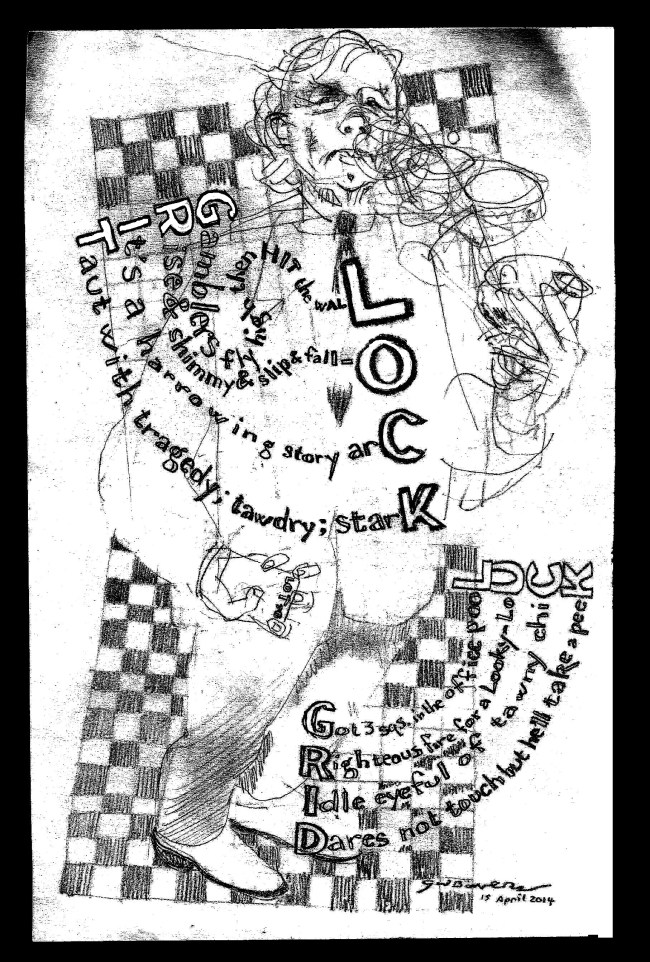 Gamblers fly high; then HIT the WALL
Rise & shimmy & slip & fall-O
It's a harrowing story arC
Taut with tragedy; tawdry; starK
Got 3 sqs. in the office pooL
Righteous fire for a Looky-LoU
Idle eyeful of tawny chiC
Dares not touch but he'll take a peeK
15 April 2014